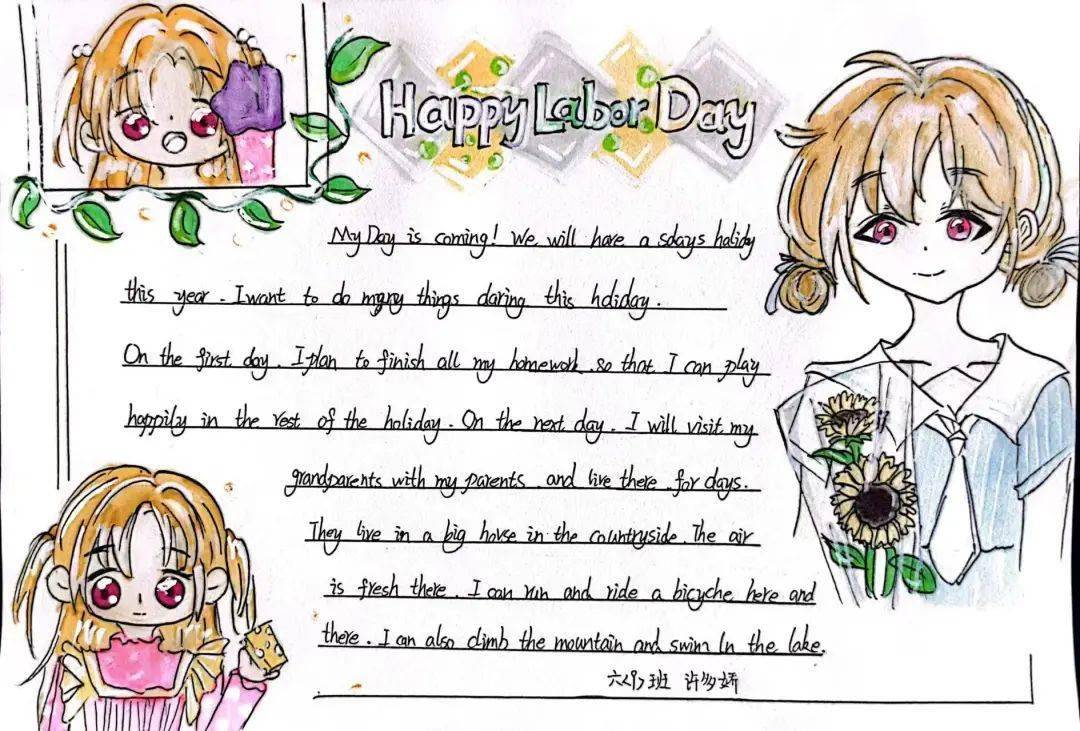 Happy Labor Day
My Day is coming! We will have a 5days haliday
this year. I want to do many things daring this holiday.
On the first day. I plan to finish all my homework. so that I can play
happily in the rest of the holiday. On the next day. I will visit my
grandparents with my parents. and live there. for days.
They live in a big house in the countryside. The air
is fresh there. I can run and ride a bicyche here and
there. I can also climb the mountain and swim In the lake.
六(9)班 许多娇